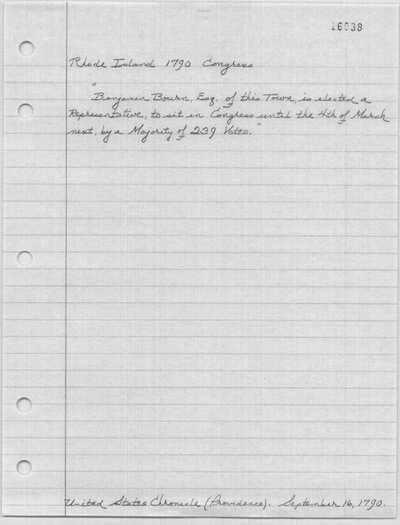 16038
Rhode Island 1790 Congress
"Benjamin Bourn, Esq. of this Town, is elected a
Representative, to sit in Congress until the 4th of March
next, by a Majority of 239 Votes."
United States Chronicle (Providence). September 16, 1790.